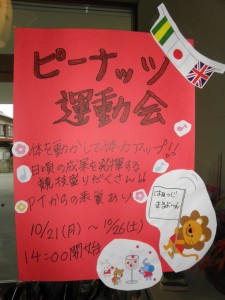 ピーナッツ
運動会
体を動かして体力アップ!!
日頃の成果を発揮する
競技盛りだくさん!!
PTからの表賞あり
10/21(月)～10/26(土)
14:00開始